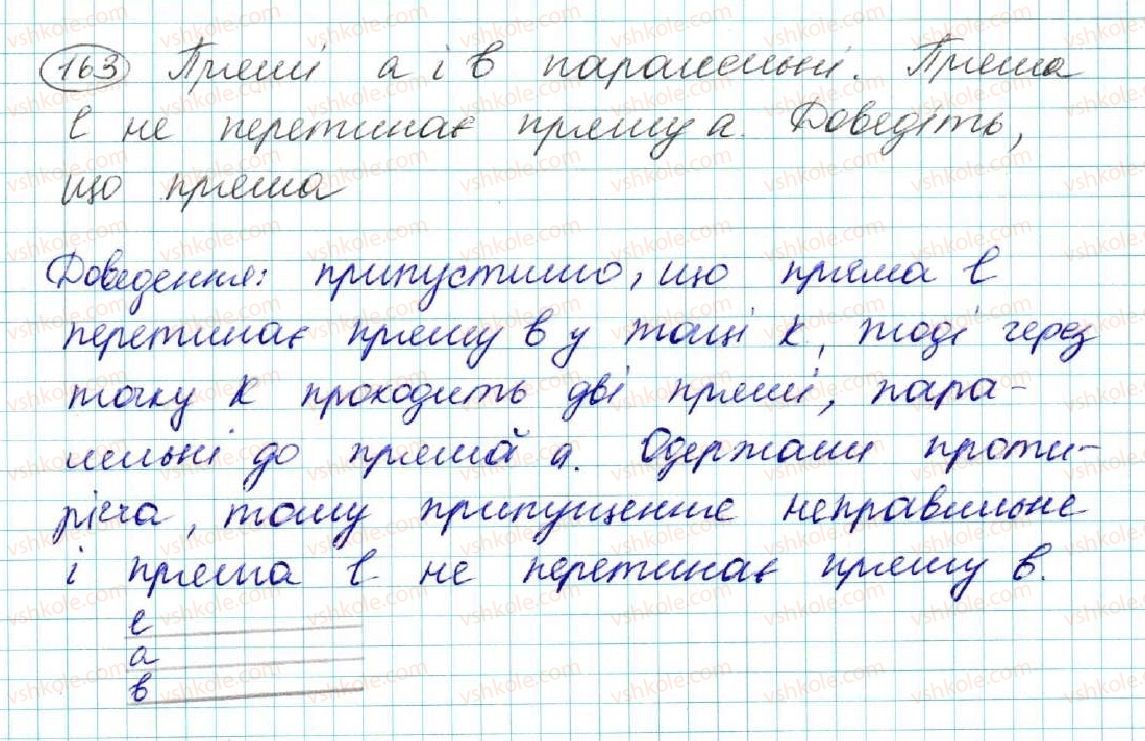 163 Прямі а і в паралельні. Пряма
l не перетинає пряму а. Доведіть,
що пряма
Доведення: припустимо, що пряма l
перетинає пряму в у точці К, тоді через
точку К проходить дві прямі, пара-
лельні до прямой а. Одержали проти-
річча, тому припущення неправильне
і пряма l не перетинає пряму в.
l
а
в